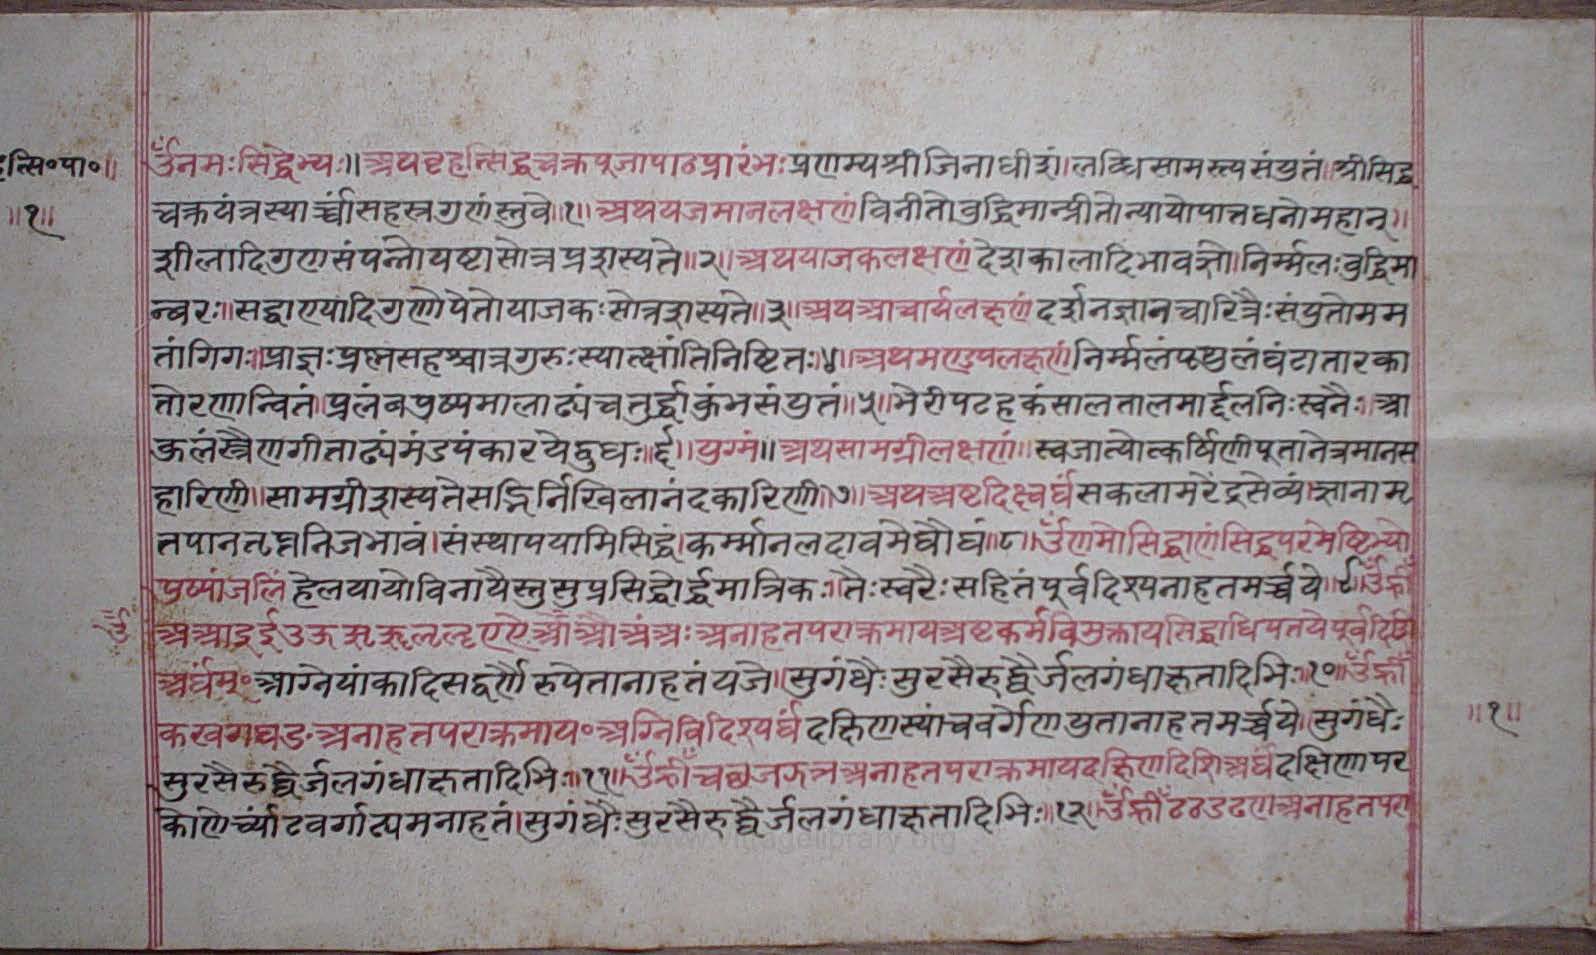 त्सि॰पा॰॥
॥१॥
ॐनमःसिद्धेभ्यः॥अथबृहत्सिद्धचक्रपूजापाठप्रारंभःप्रणम्यश्रीजिनाधीशं॥लब्धिसामस्त्यसंयुतं॥श्रीसिद्ध
चक्रयंत्रस्यार्च्चांसहस्रगुणंस्तुवे॥१॥अथयजमानलक्षणंविनीतोबुद्धिमान्प्रीतोन्यायोपात्तधनोमहान्॥
शीलादिगुणसंपन्नोयष्टासोत्रप्रशस्यते॥२॥अथयाजकलक्षणंदेशकालादिभावज्ञो॥निर्म्मलःबुद्धिमा
न्वरः॥सद्वाण्यादिगुणोपेतोयाजकःसोत्रशस्यते॥३॥अथआचार्यलक्षणंदर्शनज्ञानचारित्रैःसंयुतोमम
तांगिगः॥प्राज्ञःप्रश्नसहश्चात्रगुरुःस्यात्क्षांतिनिष्टितः॥४॥अथमण्डपलक्षणंनिर्म्मलंपृथुलंघंटातारका
तोरणान्वितं॥प्रलंबपुष्पमालाढ्यंचतुर्द्धाकुंभसंयुतं॥५॥भेरीपटहकंसालतालमार्द्दलनिःस्वनैः॥आ
कुलंस्त्रैणगीताढ्यंमंडपंकारयेद्बुधः॥६॥युग्मं॥अथसामग्रीलक्षणं॥स्वजात्योत्कर्षिणीपूतानेत्रमानस
हारिणी॥सामग्रीशस्यतेसद्भिर्निखिलानंदकारिणी॥७॥अथअष्टदिक्ष्वर्घंसकलामरेंद्रसेव्यं।ज्ञानामृ
तपानतृप्तनिजभावं।संस्थापयामिसिद्धं।कर्म्मानलदावमेघौघं॥८॥ॐणमोसिद्धाणंसिद्धपरमेष्टिभ्यो
पुष्पांजलिंहेलयायोविनायैस्तुसुप्रसिद्धोर्द्धमात्रिकः॥तैःस्वरैःसहितंपूर्वदिश्यनाहतमर्च्चये॥९॥ॐह्रीँ
अआइईउऊऋॠलृॡएऐओऔअंअःअनाहतपराक्रमायअष्टकर्मविमुक्तायसिद्धाधिपतयेपूर्वदिशि
अर्घम्॰आग्नेयांकादिसद्वर्णैरुपेतानाहतंयजे॥सुगंधैःसुरसैरुद्घैर्जलगंधाक्षतादिभिः॥१०॥ॐह्रीँ
कखगघङअनाहतपराक्रमाय॰अग्निविदिश्यर्घंदक्षिणस्यांचवर्गेणयुतानाहतमर्च्चये॥सुगंधैः
सुरसैरुद्घैर्जलगंधाक्षतादिभिः॥११॥ॐह्रीँचछजझञअनाहतपराक्रमायदक्षिणदिशिअर्घंदक्षिणापर
कोणेर्च्च्यांटवर्गाढ्यमनाहतं॥सुगंधैःसुरसैरुद्घैर्जलगंधाक्षतादिभिः॥१२॥ॐह्रीँटठडढणअनाहतपरा
॥१॥